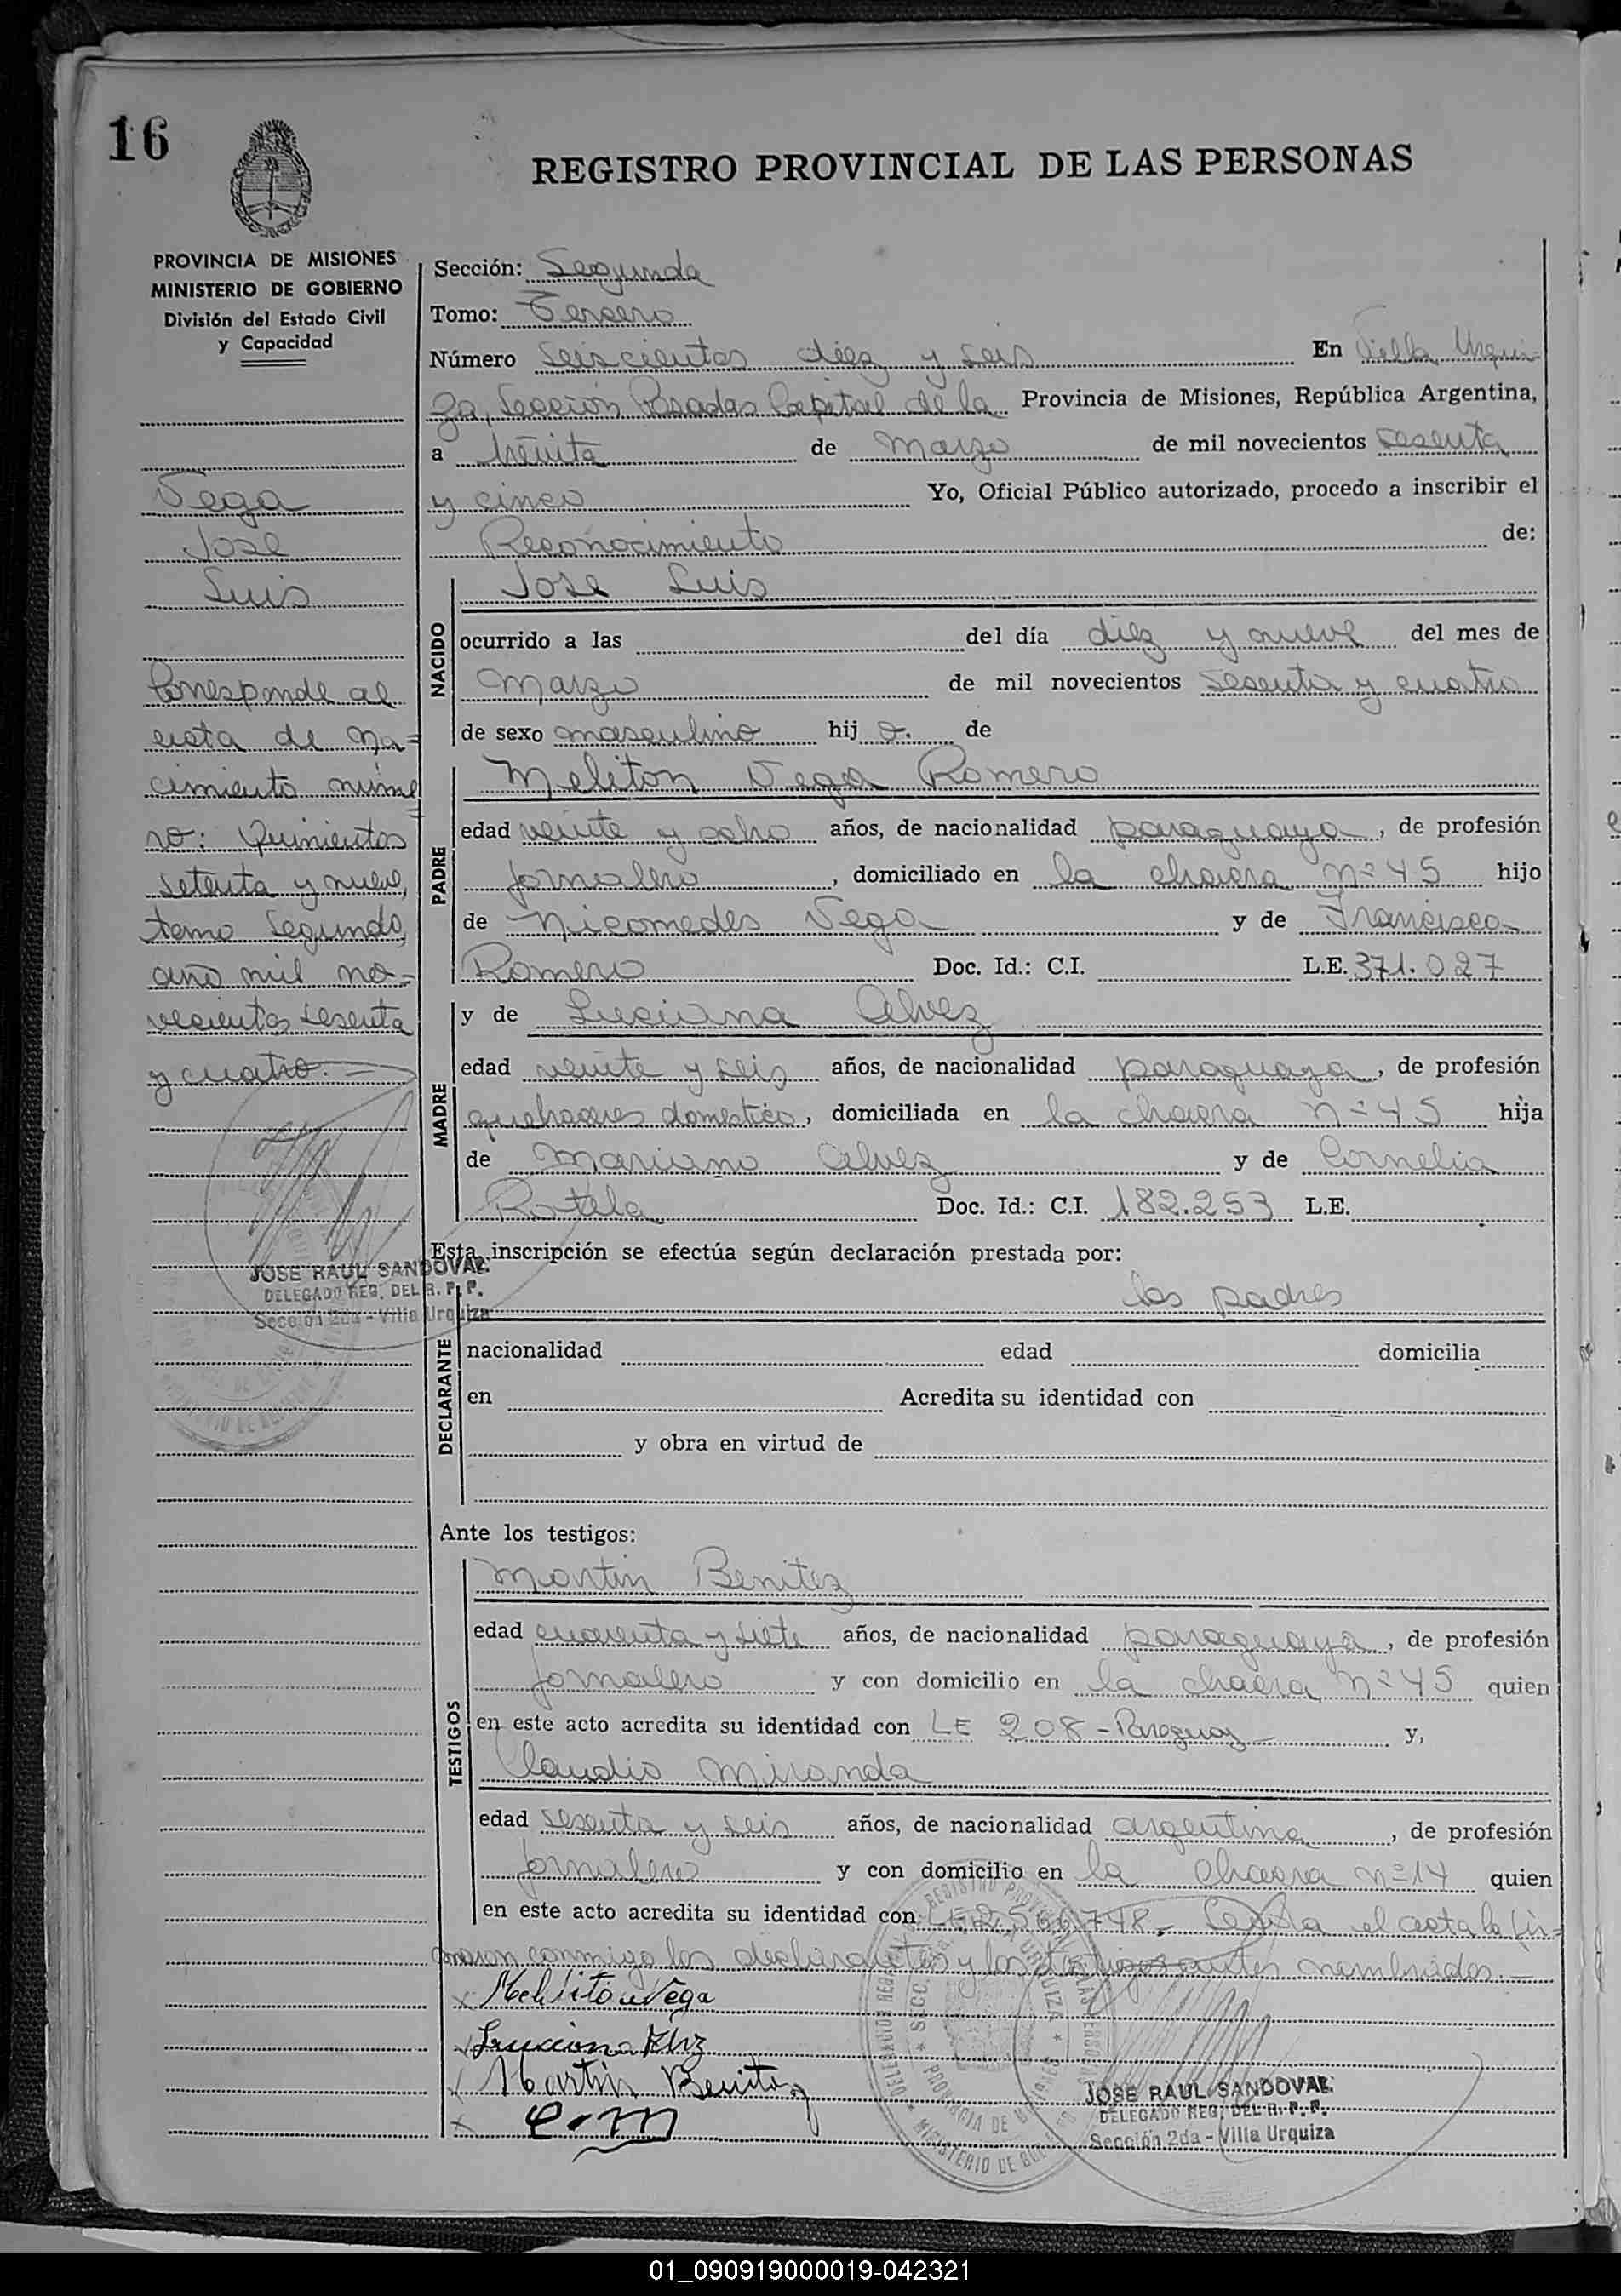 16
REGISTRO PROVINCIAL DE LAS PERSONAS
PROVINCIA DE MISIONES
MINISTERIO DE GOBIERNO
División del Estado Civil
y Capacidad
Vega
Jose
Luis
Corresponde al
acta de na=
cimiento núme=
ro: Quinientos
setenta y nueve,
tomo segundo,
año mil no=
vecientos sesenta
y cuatro.
JOSE RAUL SANDOVAL
DELEGADO REG. DEL R. P. P.
Sección 2da - Villa Urquiza
Sección: Segunda
Tomo: Tercero
Número Seiscientos diez y seis En Villa Urqui-
za, Sección Posadas Capital de la Provincia de Misiones, República Argentina,
a treinta de Marzo de mil novecientos sesenta
y cinco Yo, Oficial Público autorizado, procedo a inscribir el
Reconocimiento de:
NACIDO
Jose Luis
ocurrido a las del día diez y nueve del mes de
Marzo de mil novecientos sesenta y cuatro
de sexo masculino hij o. de
PADRE
Meliton Vega Romero
edad veinte y ocho años, de nacionalidad paraguaya, de profesión
jornalero, domiciliado en la chacra nº 45 hijo
de Nicomedes Vega y de Francisca
Romero Doc. Id.: C.I. L.E. 371.027
MADRE
y de Luciana Alvez
edad veinte y seis años, de nacionalidad paraguaya, de profesión
quehaceres domestico, domiciliada en la chacra nº 45 hija
de Mariano Alvez y de Cornelia
Rotela Doc. Id.: C.I. 182.253 L.E.
Esta inscripción se efectúa según declaración prestada por:
los padres
DECLARANTE
nacionalidad edad domicilia
en Acredita su identidad con
y obra en virtud de
Ante los testigos:
TESTIGOS
Martin Benitez
edad cuarenta y siete años, de nacionalidad paraguaya, de profesión
jornalero y con domicilio en la chacra nº 45 quien
en este acto acredita su identidad con LE 208 - Paraguay y,
Claudio Miranda
edad sesenta y seis años, de nacionalidad argentina, de profesión
jornalero y con domicilio en la chacra nº 14 quien
en este acto acredita su identidad con el acta la fir=
maron conmigo los declarantes y los testigos antes nombrados.—
x Mehlito Vega
x Lucciona
x Martin Benitez
x C.M
JOSE RAUL SANDOVAL
DELEGADO REG. DEL R. P. P.
Sección 2da - Villa Urquiza
01_090919000019-042321